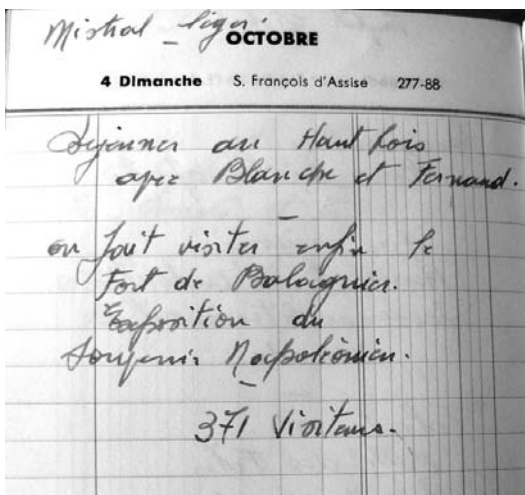 Mistral _ léger.
OCTOBRE
4 Dimanche S. François d'Assise 277-88
Déjeuner au Haut bois
avec Blanche et Fernand.
on fait visiter enfin le
Fort de Balaguier.
Exposition du
Souvenir Napoléonien.
371 Visiteurs.